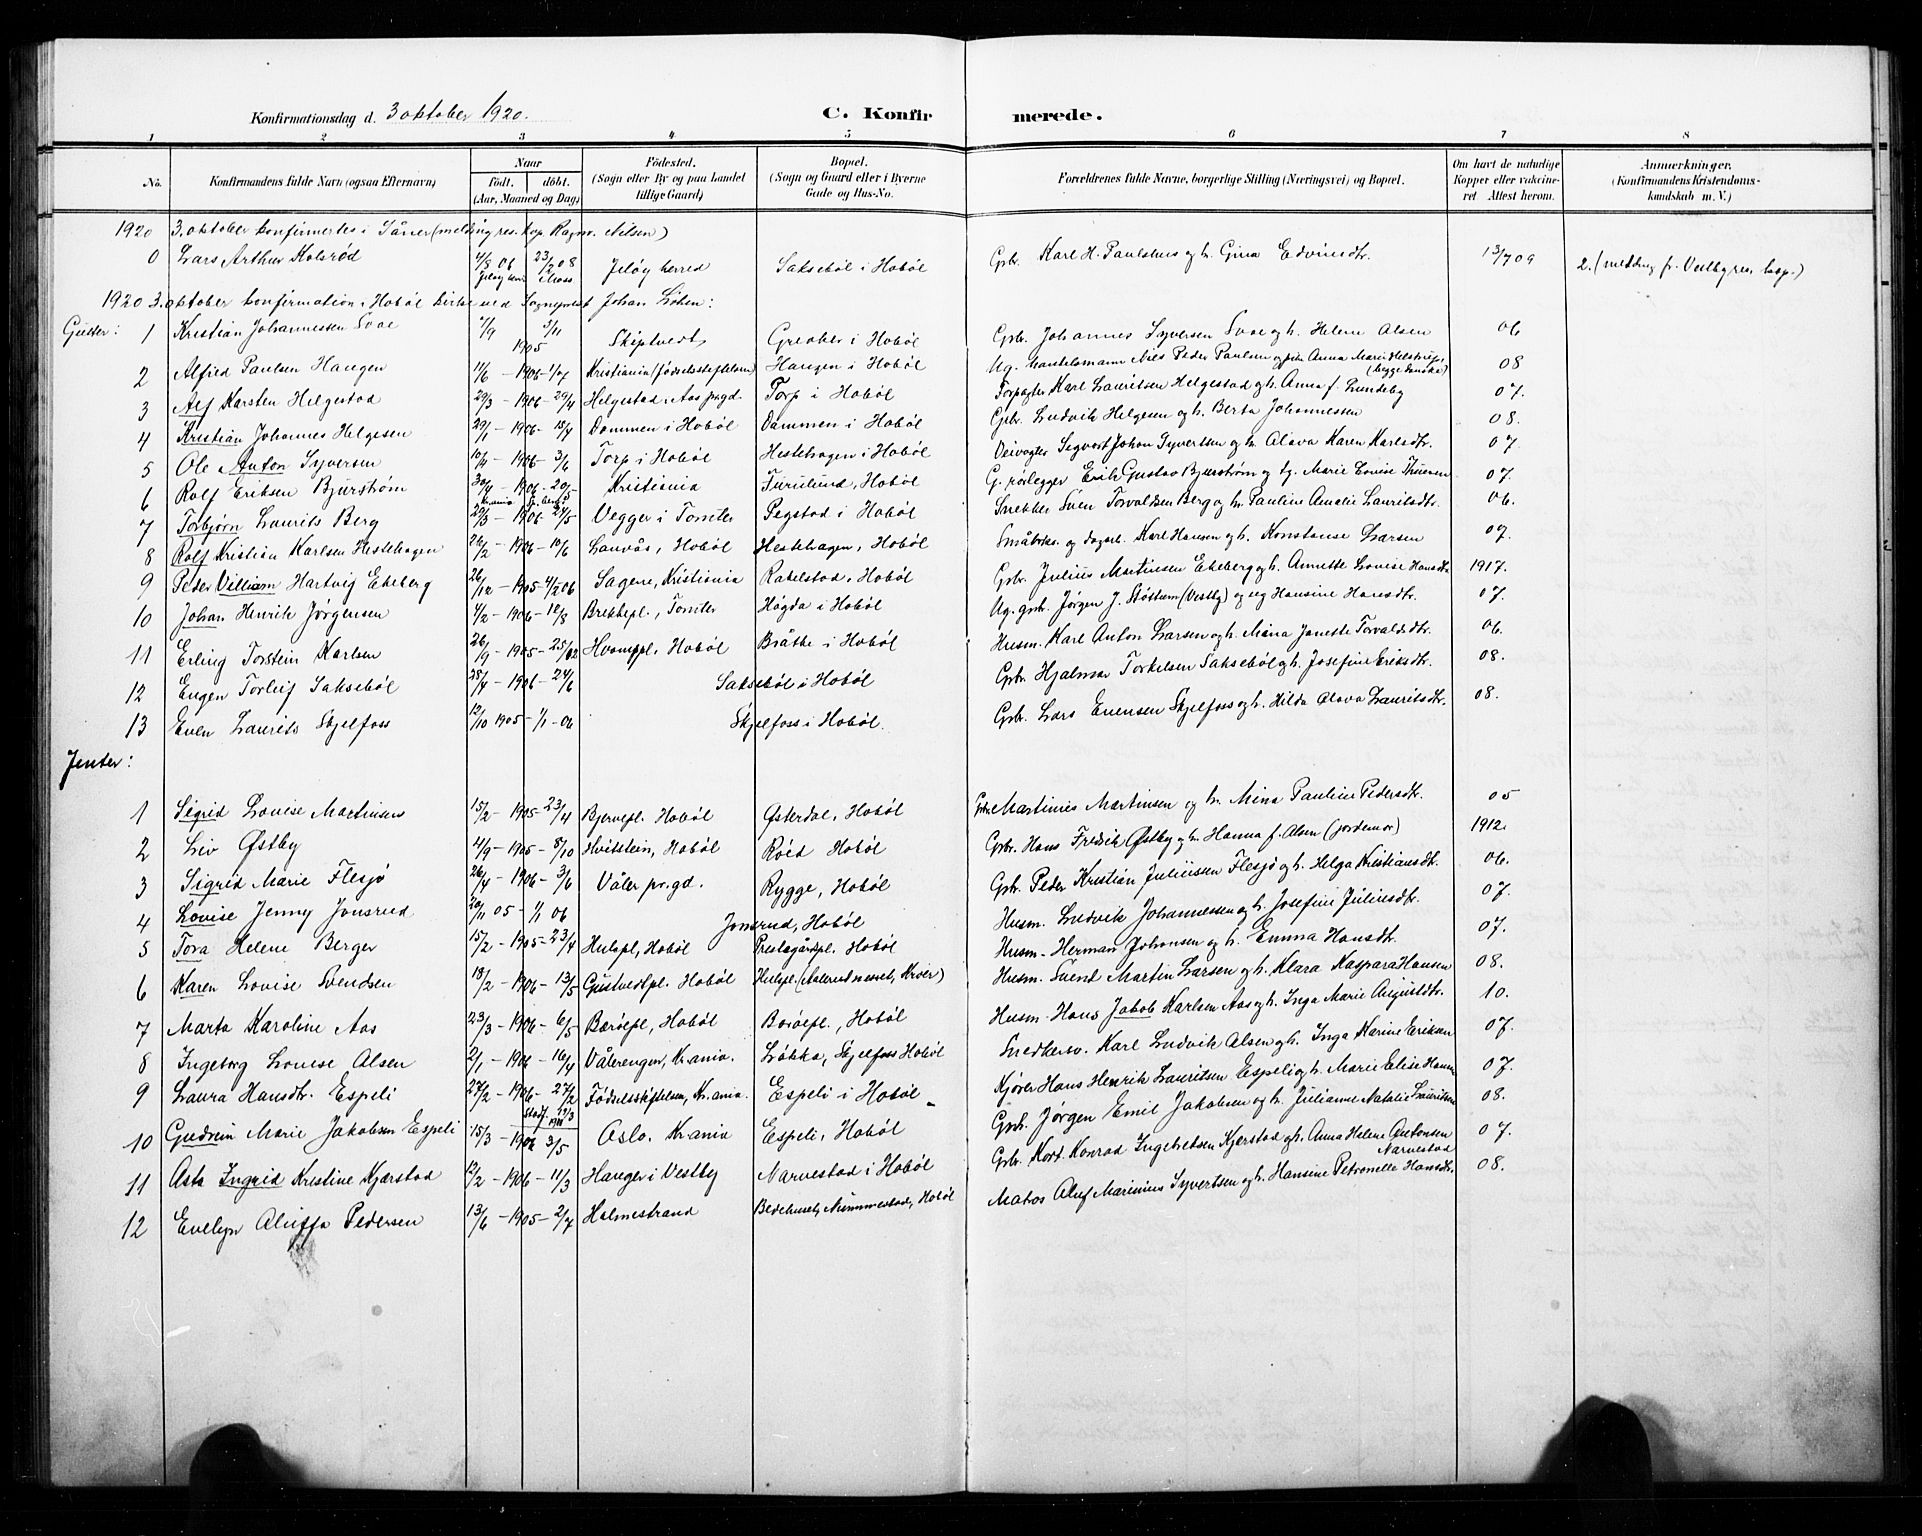 Konfirmationsdag d. 3 oktober 1920.
C. Konfirmerede.
1 2 3 4 5 6 7 8
No. Konfirmandens fulde Navn (ogsaa Efternavn) Naar födt. döbt. (Aar, Maaned og Dag) Födested. (Sogn eller By og paa Landet tillige Gaard) Bopæl. (Sogn og Gaard eller i Byerne Gade og Hus-No. Forældrenes fulde Navne, borgerlige Stilling (Næringsvei) og Bopæl. Om havt de naturlige Kopper eller vaccineret Attest herom. Anmærkninger. (Konfirmandens Kristendomskundskab m. V.)
1920 3. oktober konfirmertes i Såner (melding res. kap. Ragnv. Nilsen)
0 Lars Arthur Kolsrød 4/8 06 23/2 08 Jeløy herred Saksebøl i Hobøl Gbr. Karl H. Paulshus og h. Gina Edvinsdtr. 13/7 09 2. (melding fr. Vestby res. kap.)
1920 3. oktober konfirmation i Hobøl kirke ved Sogneprest Johan Løken:
Gutter: 1 Kristian Johannessen Svae 7/9 1905 5/11 Skiptvedt Greaker i Hobøl Gbr. Johannes Syversen Svae og h. Helene Olsen 06
2 Alfred Paulsen Haugen 11/6 - 1906 - 1/7 Kristiania (Fødselsstiftelsen) Haugen i Hobøl Ug. handelsmann Nils Peder Paulsen og pike Anna Marie Helstrup (begge danske) 08
3 Alf Karsten Helgestad 29/3 - 1906 - 29/4 Helgestad i Aas prgd. Torp i Hobøl Forpagter Karl Lauritsen Helgestad og h. Anna f. Lundeby 07.
4 Kristian Johannes Helgesen 29/1 - 1906 - 15/4 Dammen i Hobøl Dammen i Hobøl Gbr. Ludvik Helgesen og h. Berta Johannessen 08.
5 Ole Anton Syversen 10/4 - 1906 - 3/6 Torp i Hobøl Hestehagen i Hobøl Veivogter Sigvart Johan Syvertsen og h. Olava Karen Karlsdtr. 07.
6 Rolf Eriksen Bjurström 30/4 - 1906 - 20/5 Kristiania Furulund, Hobøl G. rørlegger Erik Gustav Bjurström og h. Marie Lovise Thunem 07.
7 Torbjørn Laurits Berg 29/3 - 1906 - 24/5 Vegger i Tomter Pegstad i Hobøl Snekker Sven Torvaldsen Berg og h. Pauline Amalie Lauritsdtr. 06.
8 Rolf Kristian Karlsen Hestehagen 26/2 - 1906 - 10/6 Lauvås, Hobøl Hestehagen, Hobøl Småbrks. og dagarb. Karl Hansen og h. Konstanse Larsen 07.
9 Peder Villiam Hartvig Ekeberg 26/12 - 1905 - 4/2 06 Sagene, Kristiania Rakelstad, Hobøl Gbr. Julius Martinsen Ekeberg og h. Annette Lovise Hansdtr. 1917.
10 Johan Henrik Jørgensen 4/2 - 1906 - 10/8 Brekkepl., Tomter Høgda i Hobøl Ug. gbr. Jørgen J. Støttum (Vestby) og ug Hansine Hansdtr. 07.
11 Erling Torstein Karlsen 26/9 - 1905 - 25/02 Hvampl., Hobøl Bråthe i Hobøl Husm. Karl Anton Larsen og h. Mina Janette Torvaldsdtr. 06.
12 Eugen Torleif Saksebøl 28/4 - 1906 - 24/6 Saksebøl i Hobøl Gbr. Hjalmar Torkelsen Saksebøl og h. Josefine Eriksdtr. 08.
13 Even Laurits Skjelfoss 12/10 1905 - 1/1 - 06 Skjelfoss i Hobøl. Gbr. Lars Evensen Skjelfoss og h. Hilda Olava Lauritsdtr. 08.
Jenter:
1 Sigrid Lovise Martinsen 15/2 - 1905 - 23/4 Bjervepl. Hobøl Østerdal, Hobøl Gbr. Martinius Martinsen og h. Mina Pauline Pedersdtr. 05
2 Liv Østby 4/9 - 1905 - 8/10 Hvitstein, Hobøl Roëd Hobøl Gbr. Hans Fredrik Østby og h. Hanna f. Olsen (jordemor) 1912.
3 Sigrid Marie Flesjø 26/4 - 1906 - 3/6 Våler pr.gd. Rygge, Hobøl Gbr. Peder Kristian Juliussen Flesjø og h. Helga Kristiansdtr. 06.
4 Lovise Jenny Jonsrud 20/11 05 - 1/1 06 Jonsrud, Hobøl Husm. Ludvik Johannessen og h. Josefine Juliusdtr. 07.
5 Tora Helene Berger 15/2 - 1905 - 23/4 Hulspl, Hobøl Prestegårdspl. Hobøl Husm. Herman Johansen og h. Emma Hansdtr. 07.
6 Karen Lovise Svendsen 18/2 - 1906 - 13/5 Gustvedtpl. Hobøl Hulspl. (Aalerudneset, Kroer) Husm. Svend Martin Larsen og h. Klara Kaspara Hansen 08.
7 Marta Karoline Aas 23/3 - 1906 - 6/5 Børøepl, Hobøl Børøepl., Hobøl Husm. Hans Jakob Karlsen Aas og h. Inga Marie Augustdtr. 10.
8 Ingeborg Lovise Olsen 2/1 - 1906 - 16/4 Vålerengen, Kr.ania. Løkka, Skjelfoss Hobøl Snedkersv. Karl Ludvik Olsen og h. Inga Karine Eriksen 07.
9 Laura Hansdtr. Espeli 27/2 - 1906 - 27/2 Fødselsstiftelsen, Kr.ania. Espeli i Hobøl Kjører Hans Henrik Lauritsen Espeli og h. Marie Elise Hansen 07.
10 Gudrun Marie Jakobsen Espeli 15/3 - 1906 3/5 Oslo. Kr.ania Espeli, Hobøl Gbr. Jørgen Emil Jakobsen og h. Julianne Natalie Lauritsen 08.
11 Asta Ingrid Kristine Kjærstad 12/2 - 1906 - 11/3 Hauger i Vestby Narvestad i Hobøl Gbr. Kort Konrad Ingebretsen Kjerstad og h. Anna Helene Antonsen Narvestad 07.
12 Evelyn Aluffa Pedersen 13/6 - 1905 - 2/7 Holmestrand Bedehuset, Nummestad, Hobøl Matos Oluf Marinius Syvertsen og h. Hansine Petronelle Hansdtr. 08.